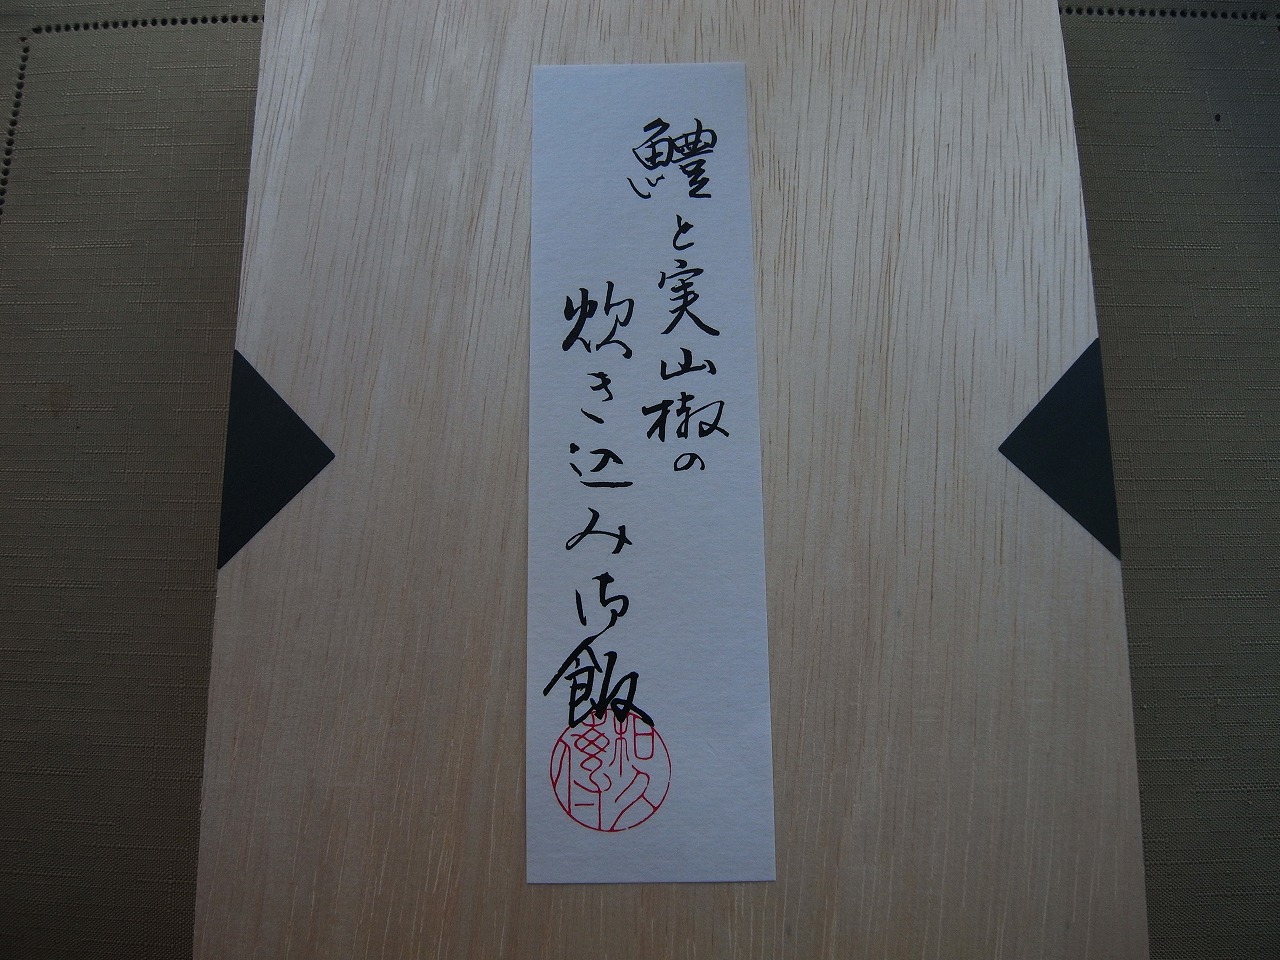 鱧と実山椒の
炊き込み御飯
和久傳